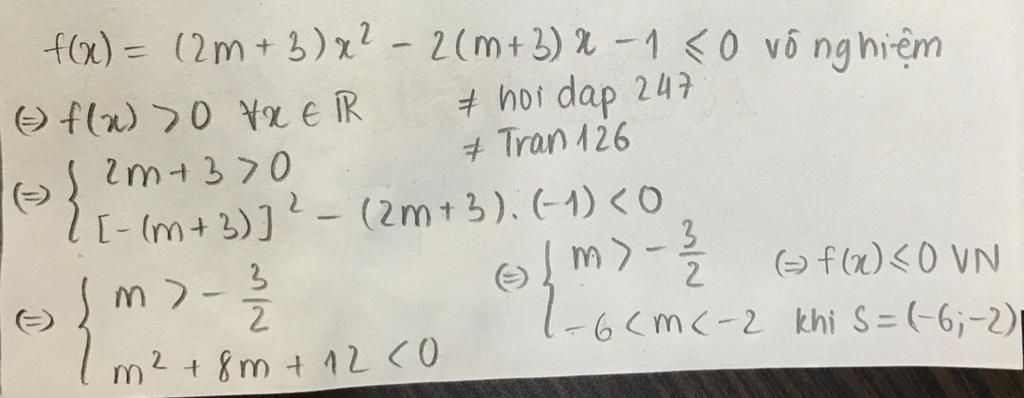 f(x) = (2m + 3)x² - 2(m+3)x - 1 ≤ 0 vô nghiệm
⇔ f(x) > 0 ∀x ∈ ℝ
≠ hoi dap 247
≠ Tran126
⇔ { 2m + 3 > 0
[-(m+3)]² - (2m+3).(-1) < 0
⇔ { m > - 3/2
m² + 8m + 12 < 0
⇔ { m > - 3/2
-6 < m < -2
⇔ f(x) ≤ 0 VN
khi S = (-6;-2)